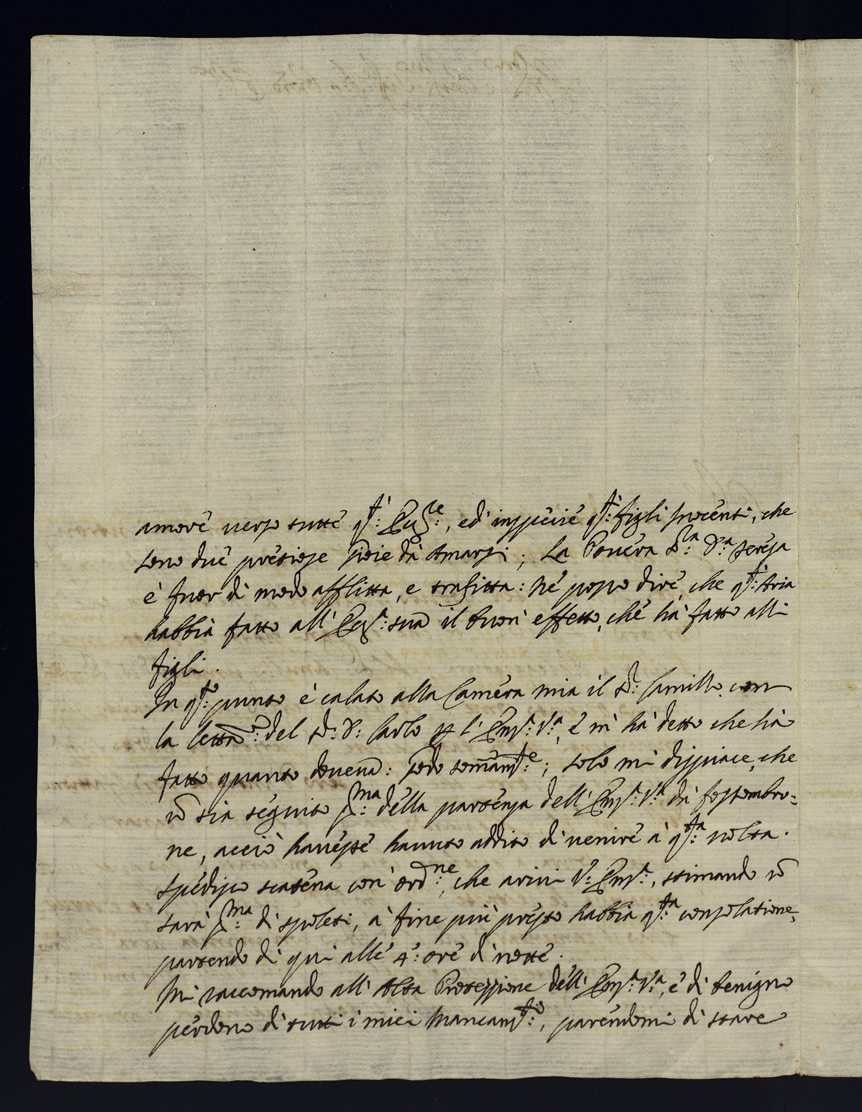 amore verso tutte q.te Ecc.ze, ed inspecie q.ti figli Inocenti, che
sono due preziose Gioie da Amarsi; La Povera S.ra D.a Teresa
è fuor di modo afflitta, e trafitta: Né posso dire, che q.st'Aria
habbia fatto all'Ecc.a sua il buon effetto, che hà fatto alli
figli.
In q.to punto è calato alla Camera mia il S.r Camillo con
la lettera del S.r D. Carlo p l'Em.a V.a, e m'hà detto che hà
fatto quanto doveva: godo somam.te; solo mi dispiace, che
nō sia seguito p.ma della partenza dell'Em.a V.a da
ne, acciò havesse havuto adito di venire à q.sta volta.
Spedisco con ord.ne, che arivi V.a Em.a, stimando nō
sarà p.ma di Spoleti, à fine più presto habbia q.sta consolatione,
partendo di qui alle 4: ore di notte.
Mi raccomando all'Alta Protezzione dell'Em.a V.a, e di benigno
perdono di tutti i miei Mancam.ti, parendomi di stare